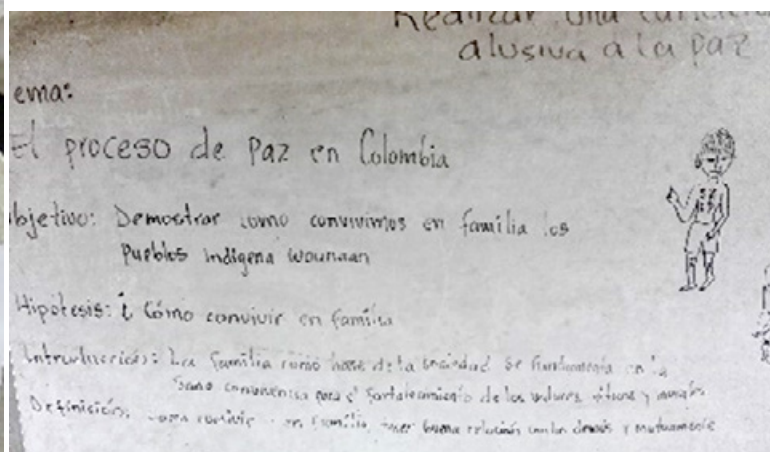 Realizar una
alusiva a la paz
ema:
El proceso de Paz en Colombia
bjetivo: Demostrar como convivimos en familia los
Pueblos indígena wounaan
Hipotesis: ¿ Cómo convivir en familia
La familia como base de la sociedad se fundamenta en la
sana convivencia para el fortalecimiento de los valores éticos y morales
convivir en familia, tener buena relación con los demás y mutuamente